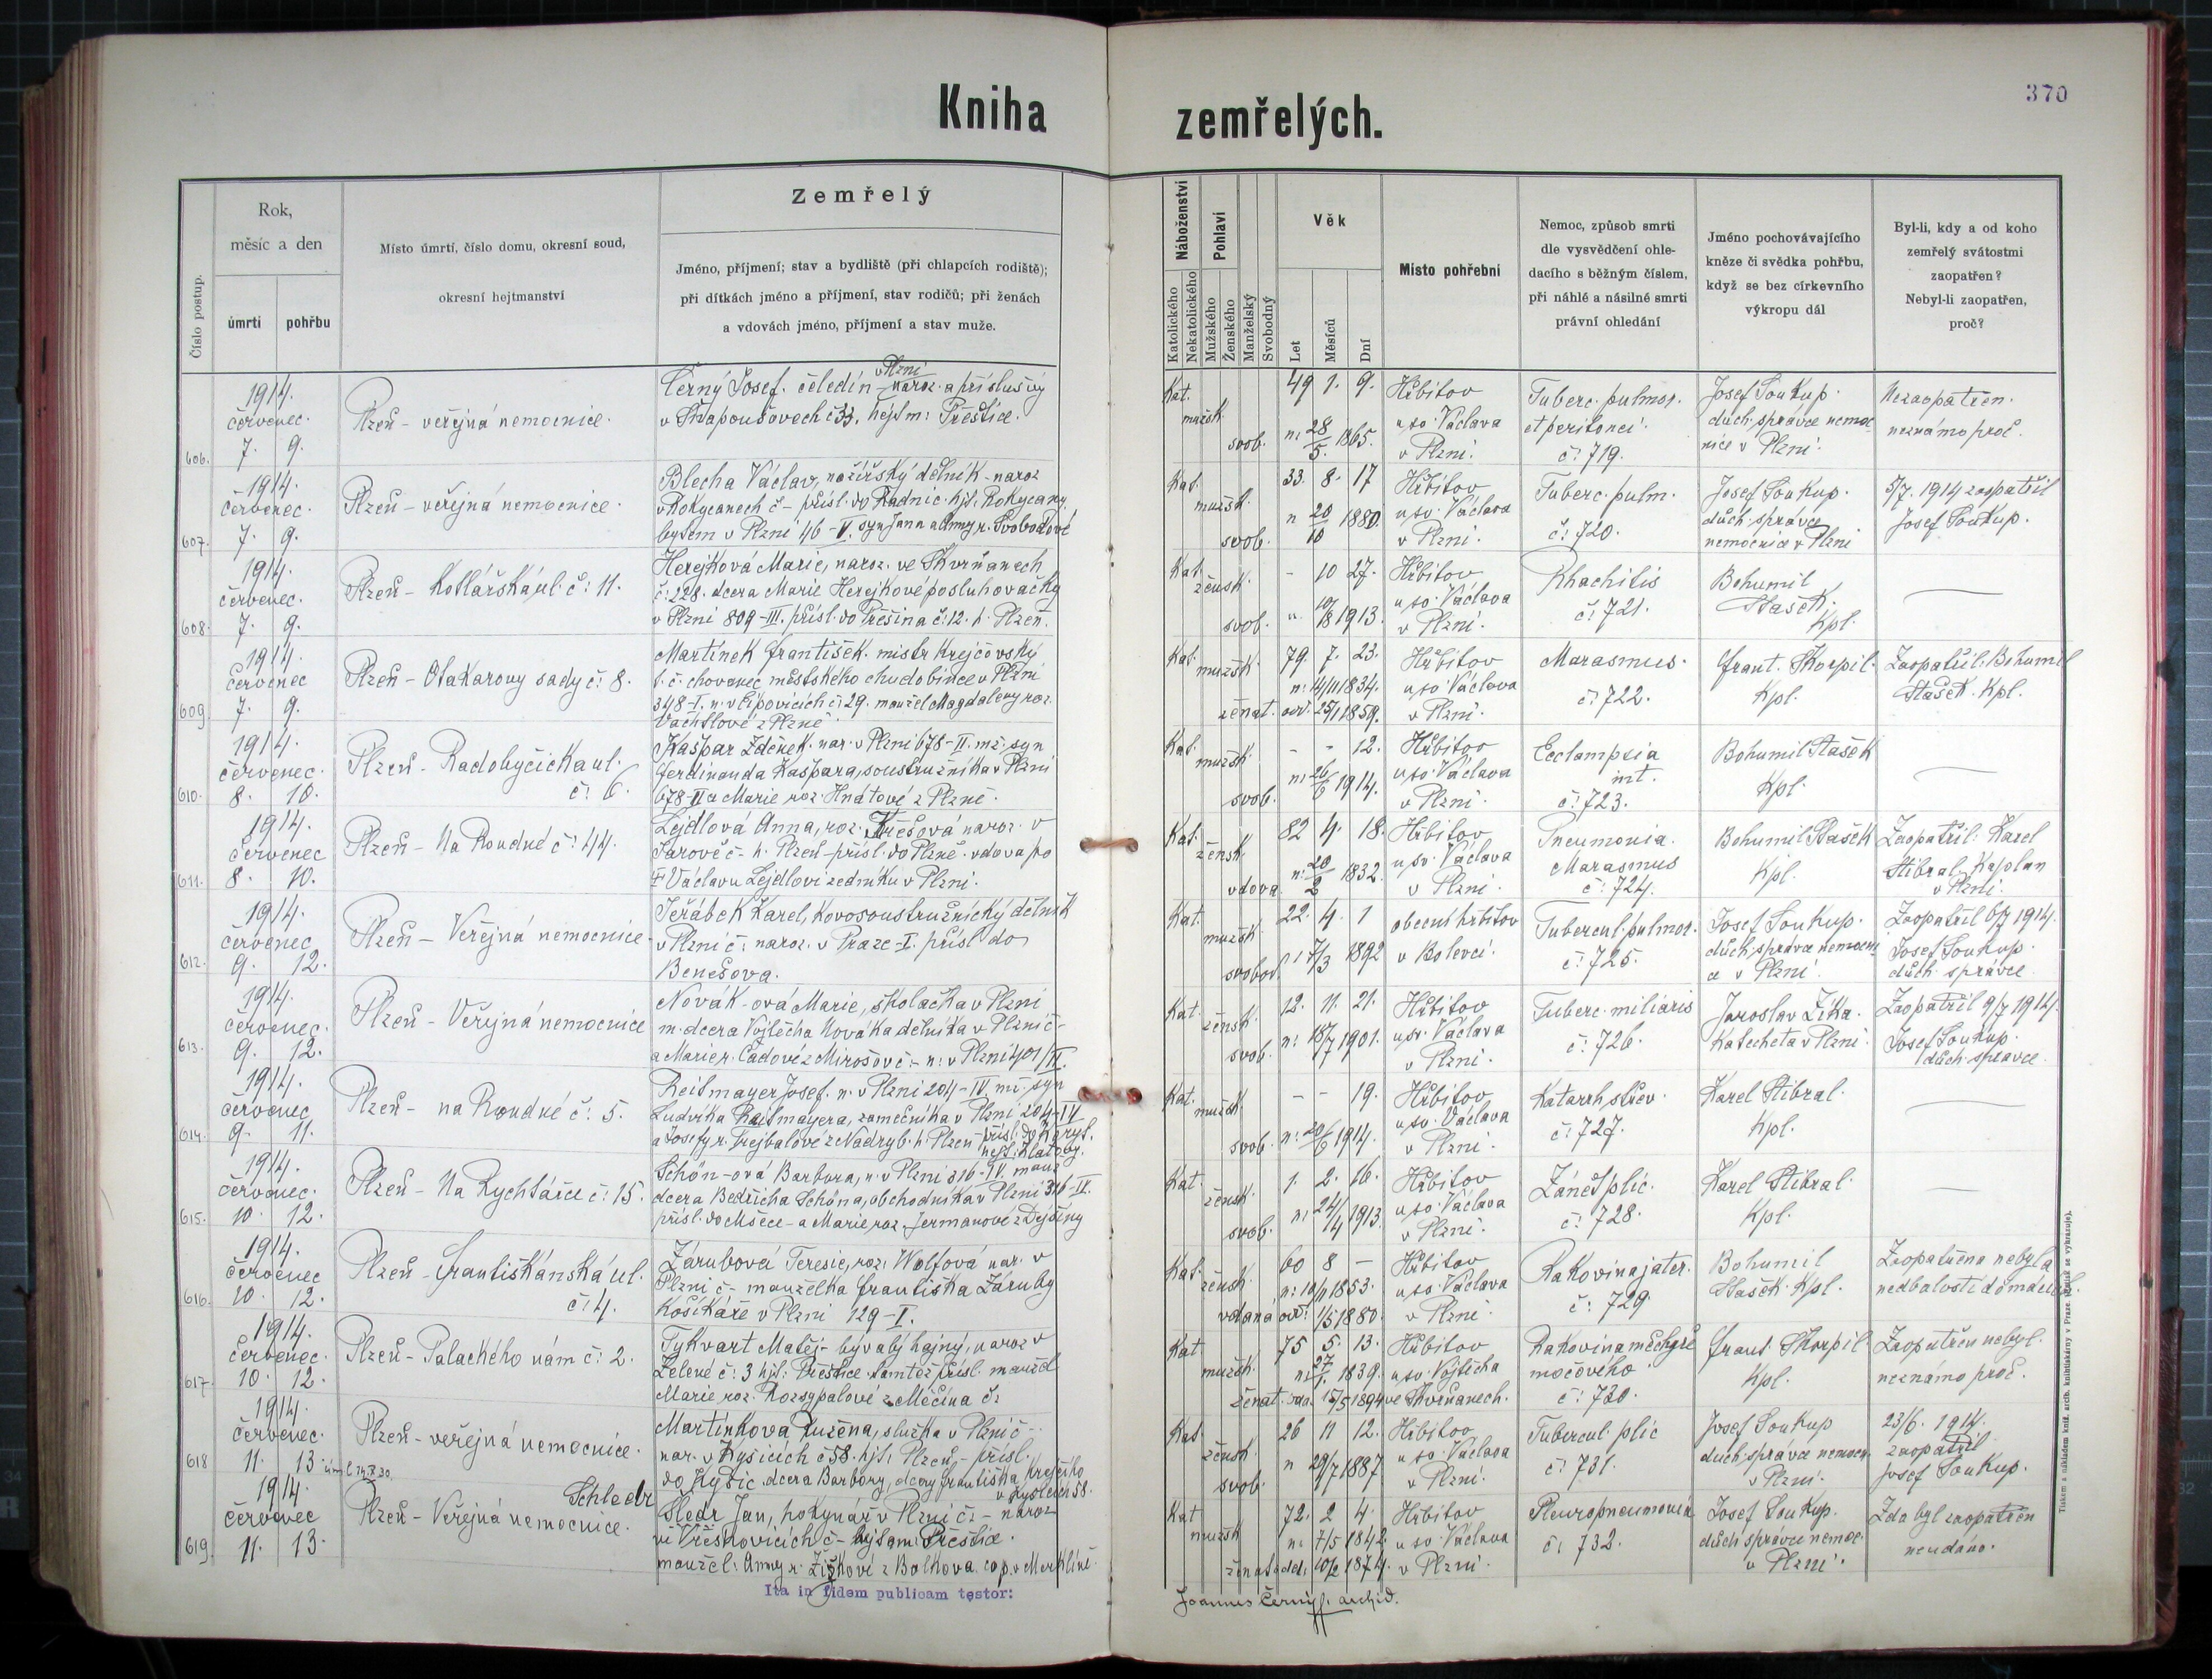 Kniha zemřelých.
370
Číslo postup.
Rok,
měsíc a den
úmrtí
pohřbu
Místo úmrtí, číslo domu, okresní soud,
okresní hejtmanství
Zemřelý
Jméno, příjmení; stav a bydliště (při chlapcích rodiště);
při dítkách jméno a příjmení, stav rodičů; při ženách
a vdovách jméno, příjmení a stav muže.
Náboženství
Katolického
Nekatolického
Pohlaví
Mužského
Ženského
Manželský
Svobodný
Věk
Let
Měsíců
Dní
Místo pohřební
Nemoc, způsob smrti
dle vysvědčení ohle-
dacího s běžným číslem,
při náhlé a násilné smrti
právní ohledání
Jméno pochovávajícího
kněze či svědka pohřbu,
když se bez církevního
výkropu dál
Byl-li, kdy a od koho
zemřelý svátostmi
zaopatřen?
Nebyl-li zaopatřen,
proč?
606.
1914.
červenec.
7. 9.
Plzeň - veřejná nemocnice.
v Plzni
Černý Josef. čeledín - naroz. a příslušný
v Šťapoušovech č 33. hejtm: Přeštice.
Kat. mužsk. svob.
49 1. 9.
n: 28/5. 1865.
Hřbitov
u sv. Václava
v Plzni.
Tuberc. pulmos.
et peritonei.
č: 719.
Josef Soukup.
duch. správce nemoc-
nice v Plzni.
Nezaopatřen.
neznámo proč.
607.
1914.
červenec.
7. 9.
Plzeň - veřejná nemocnice.
Blecha Václav, nožířský dělník - naroz
v Rokycanech č - přísl. do Radnic. hjt. Rokycany
bytem v Plzni 46 - V. syn Jana a Anny r. Svobodové
Kat. mužsk. svob.
33. 8. 17
n 20/10 1880.
Hřbitov
u sv. Václava
v Plzni.
Tuberc. pulm.
č: 720.
Josef Soukup.
duch. správce
nemocnice v Plzni
5/7. 1914 zaopatřil
Josef Soukup.
608.
1914.
červenec.
7. 9.
Plzeň - Kotlářská ul. č: 11.
Herejková Marie, naroz. ve Skvrňanech
č: 228. dcera Marie Herejkové posluhovačky
v Plzni 809 - III. přísl. do Přešina č: 12. h. Plzeň.
Kat. žensk. svob.
- 10 27.
n. 10/8 1913.
Hřbitov
u sv. Václava
v Plzni.
Rhachitis
č: 721.
Bohumil
Stašek.
Kpl.
609.
1914.
červenec
7. 9.
Plzeň - Otakarovy sady č: 8.
Martínek František. mistr krejčovský
t. č. chovanec městského chudobince v Plzni
348 - I. n. v Čipovicích č: 29. manžel Magdaleny roz.
Vachtlové z Plzně.
Kat. mužsk. ženat.
79. 7. 23.
n: 14/11 1834.
odd. 25/1 1859.
Hřbitov
u sv. Václava
v Plzni.
Marasmus.
č: 722.
Frant. Skorpil.
Kpl.
Zaopatřil. Bohumil
Stašek. Kpl.
610.
1914.
červenec.
8. 10.
Plzeň - Radobyčická ul.
č: 6.
Kašpar Zdeněk. nar. v Plzni 678 - II. mž. syn
Ferdinanda Kašpara, soustružníka v Plzni
678 - II a Marie roz. Hnátové z Plzně.
Kat. mužsk. svob.
- - 12.
n: 26/6 1914.
Hřbitov
u sv. Václava
v Plzni.
Ecclampsia
int.
č: 723.
Bohumil Stašek
Kpl.
611.
1914.
červenec
8. 10.
Plzeň - Na Roudné č: 44.
Lejdlová Anna, roz. Křešová naroz. v
Jarově č - h. Plzeň - přísl. do Plzně. vdova po
† Václavu Lejdlovi zedníku v Plzni.
Kat. žensk. vdova
82 4. 18.
n: 20/2 1832.
Hřbitov
u sv. Václava
v Plzni.
Pneumonia.
Marasmus
č: 724.
Bohumil Stašek
Kpl.
Zaopatřil. Karel
Stibral. Kaplan
v Plzni.
612.
1914.
červenec
9. 12.
Plzeň - Veřejná nemocnice.
Jeřábek Karel, kovosoustružnický dělník
v Plzni č: naroz. v Praze - I. přísl. do
Benešova.
Kat. mužsk. svobod.
22. 4. 1
7/3 1892
obecní hřbitov
v Bolevci.
Tubercul. pulmos.
č: 725.
Josef Soukup.
duch. správce nemocni-
ce v Plzni.
Zaopatřil 6/7 1914.
Josef Soukup.
duch. správce
613.
1914.
červenec.
9. 12.
Plzeň - Veřejná nemocnice
Novák-ová Marie, školačka v Plzni
m. dcera Vojtěcha Nováka dělníka v Plzni č -
a Marie r. Čadové z Mirošova č. - n: v Plzni 401/II.
Kat. žensk. svob.
12. 11. 21.
n: 18/7 1901.
Hřbitov
u sv. Václava
v Plzni.
Tuberc. miliaris
č: 726.
Jaroslav Zíka.
Katecheta v Plzni.
Zaopatřil 9/7 1914.
Josef Soukup.
duch. správce
614.
1914.
červenec
9. 11.
Plzeň - na Roudné č: 5.
Reitmayer Josef. n. v Plzni 204 - IV. mž. syn
Ludvíka Reitmayera, zámečníka v Plzni 204 - IV
a Josefy r. Trejbalové z Nadryb. h. Plzeň - přísl. do Koryt.
hejt. Klatovy.
Kat. mužsk. svob.
- - 19.
n: 20/6 1914.
Hřbitov
u sv. Václava
v Plzni.
Katarrh střev.
č: 727.
Karel Stibral.
Kpl.
615.
1914.
červenec.
10. 12.
Plzeň - Na Rychtářce č: 15.
Schön-ová Barbora, n. v Plzni 316 - IV. manž
dcera Bedřicha Schöna, obchodníka v Plzni 316 - IV.
přísl. do Mšece - a Marie roz. Jermanové z Dejšiny
Kat. žensk. svob.
1. 2. 16.
n: 24/4 1913.
Hřbitov
u sv. Václava
v Plzni.
Zánět plic.
č: 728.
Karel Stibral.
Kpl.
616.
1914.
červenec
10. 12.
Plzeň - Františkánská ul.
č: 4.
Zárubová Teresie, roz. Wolfová nar. v
Plzni č - manželka Františka Záruby
Košíkáře v Plzni 129 - I.
Kat. žensk. vdaná
60 8 -
n: 10/11 1853.
odd: 1/5 1880.
Hřbitov
u sv. Václava
v Plzni.
Rakovina jater.
č: 729
Bohumil
Stašek. Kpl.
Zaopatřena nebyla
nedbalostí domácích.
617.
1914.
červenec.
10. 12.
Plzeň - Palackého nám č: 2.
Tykvart Matěj - bývalý hajný, naroz v
Zelené č: 3 hjt. Přeštice tamtéž přísl. manžel
Marie roz. Rozsypalové z Měčína č:
Kat. mužsk. ženat.
75 5. 13.
n: 27/1. 1839.
odd. 15/5 1894
Hřbitov
u sv. Vojtěcha
ve Skvrňanech.
Rakovina měchýře
močového
č: 730.
Frant. Skorpil
Kpl.
Zaopatřen nebyl.
neznámo proč.
618
1914.
červenec.
11. 13.
Plzeň - veřejná nemocnice.
Martínková Růžena, služka v Plzni č -
nar. v Kyšicích č 58. hjt. Plzeň - přísl.
do Kyšic. dcera Barbory, dcery Františka Krejčího
v Kyšicích 58.
Kat. žensk. svob.
26 11 12.
n 29/7 1887
Hřbitov
u sv. Václava
v Plzni.
Tubercul. plic
č: 731.
Josef Soukup
duch. správce nemocn.
v Plzni.
23/6. 1914.
zaopatřil
Josef Soukup.
619.
1914.
červenec
11. 13.
Plzeň - Veřejná nemocnice.
Schledr
Šledr Jan, pokrývač v Plzni č: - naroz
ve Vřeskovicích č - hejtm: Přeštice.
manžel: Anny r. Žiškové z Bolkova. cop. v Merklíně.
Kat. mužsk. ženat.
72. 2 4.
n: 7/5 1842.
odd: 10/2 1874.
Hřbitov
u sv. Václava
v Plzni.
Pleuropneumonia
č: 732.
Josef Soukup.
duch. správce nemoc.
v Plzni.
Zda byl zaopatřen
neudáno.
Ita in fidem publicam testor:
Joannes Černý archid.